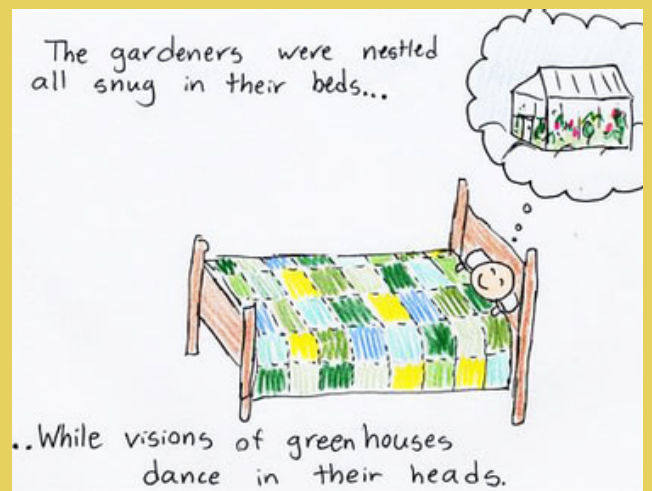 The gardeners were nestled
all snug in their beds...
..While visions of greenhouses
dance in their heads.